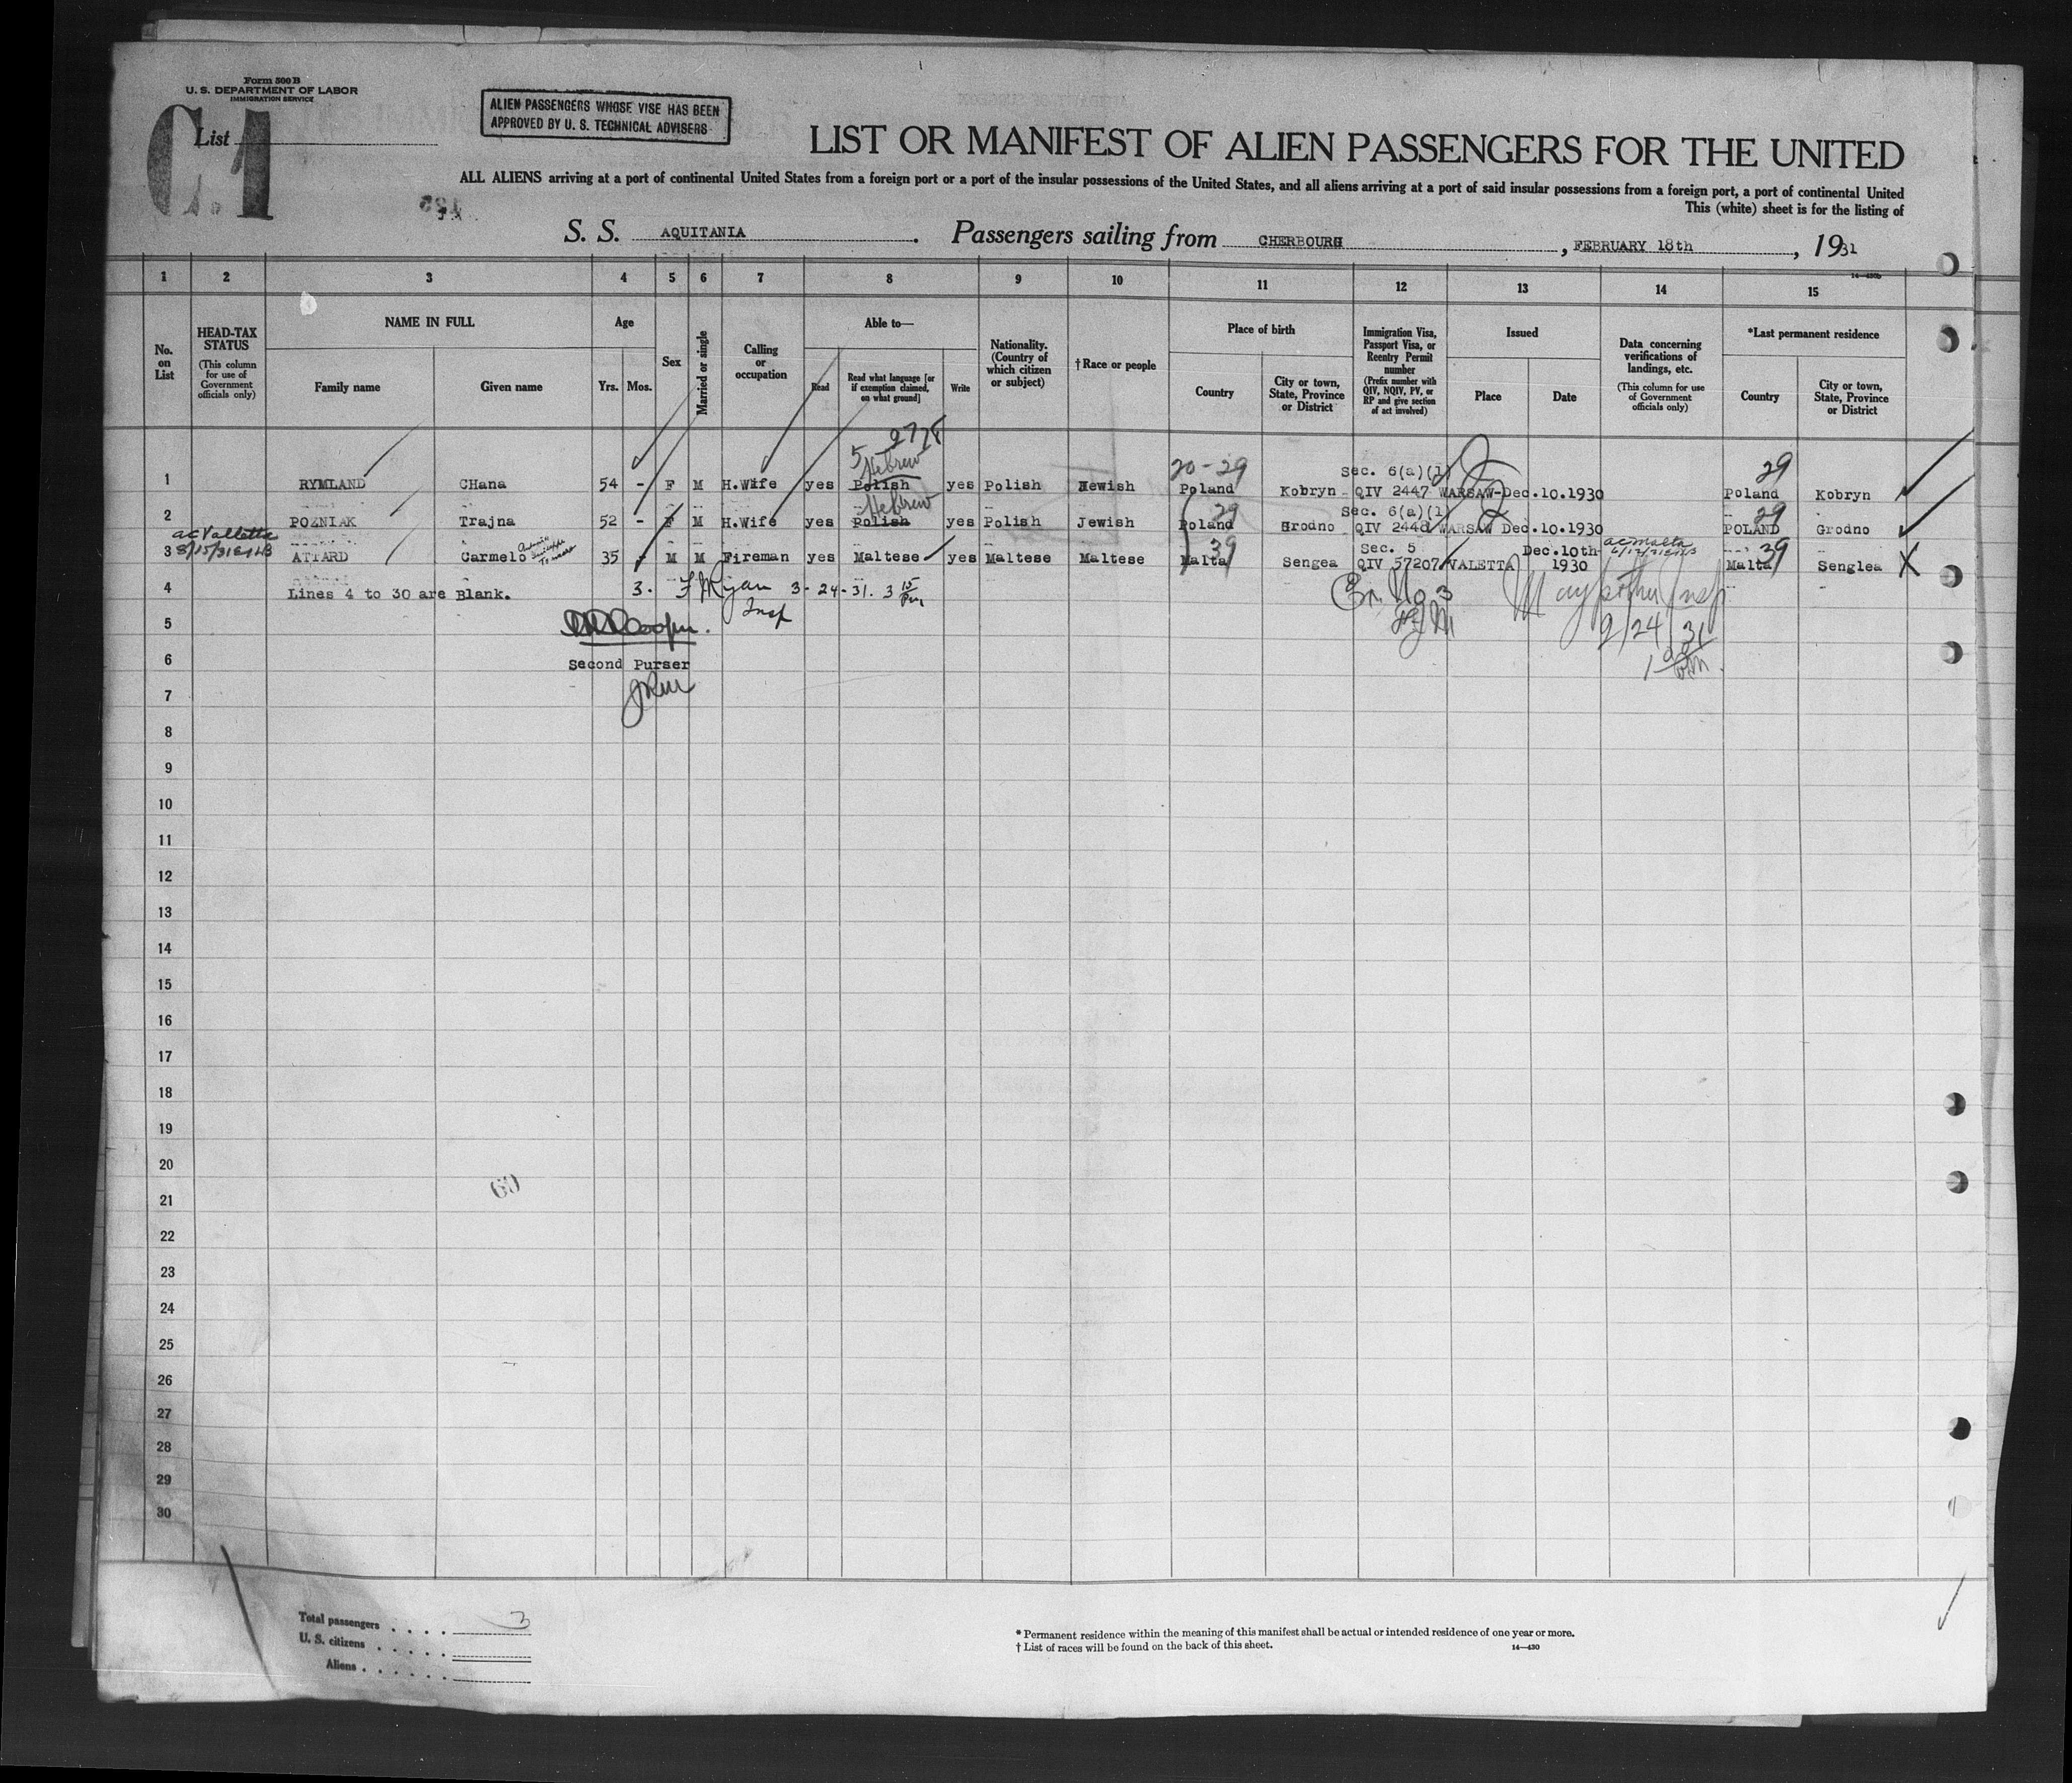 Form 500 B
U. S. DEPARTMENT OF LABOR
IMMIGRATION SERVICE
List
C1
ALIEN PASSENGERS WHOSE VISE HAS BEEN
APPROVED BY U. S. TECHNICAL ADVISERS
LIST OR MANIFEST OF ALIEN PASSENGERS FOR THE UNITED
ALL ALIENS arriving at a port of continental United States from a foreign port or a port of the insular possessions of the United States, and all aliens arriving at a port of said insular possessions from a foreign port, a port of continental United
This (white) sheet is for the listing of
S. S. AQUITANIA. Passengers sailing from CHERBOURG, FEBRUARY 18th, 1931
14—430b
1 2 3 4 5 6 7 8 9 10 11 12 13 14 15
No. on List
HEAD-TAX STATUS
(This column for use of Government officials only)
NAME IN FULL
Family name
Given name
Age
Yrs.
Mos.
Sex
Married or single
Calling or occupation
Able to—
Read
Read what language [or if exemption claimed, on what ground]
Write
Nationality. (Country of which citizen or subject)
†Race or people
Place of birth
Country
City or town, State, Province or District
Immigration Visa, Passport Visa, or Reentry Permit number
(Prefix number with QIV, NQIV, PV, or RP and give section of act involved)
Issued
Place
Date
Data concerning verifications of landings, etc.
(This column for use of Government officials only)
*Last permanent residence
Country
City or town, State, Province or District
5 2778
Hebrew 20-29 Sec. 6(a)(1) 29
1 RYMLAND CHana 54 - F M H.Wife yes Polish yes Polish Jewish Poland Kobryn QIV 2447 WARSAW-Dec.10.1930 Poland Kobryn
Hebrew 29 Sec. 6(a)(1) 29
2 POZNIAK Trajna 52 - F M H.Wife yes Polish yes Polish Jewish Poland Grodno QIV 2448 WARSAW Dec.10.1930 POLAND Grodno
ac Valletta 39 Sec. 5 Dec.10th ac malta 39
3 ATTARD Carmelo 35 M M Fireman yes Maltese yes Maltese Maltese Malta Sengea QIV 57207 VALETTA 1930 Malta Senglea
4 Lines 4 to 30 are Blank. 3. F Ryan 3-24-31. 3 15 Pm
Insp
No 3
Insp
2/24/31
5
6 Second Purser
7
8
9
10
11
12
13
14
15
16
17
18
19
20
21
22
23
24
25
26
27
28
29
30
60
Total passengers . . . . 3
U. S. citizens . . . . .
Aliens . . . . . .
* Permanent residence within the meaning of this manifest shall be actual or intended residence of one year or more.
† List of races will be found on the back of this sheet.
14—430